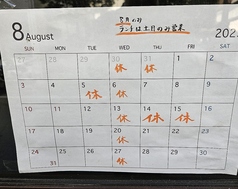 8月のみ
ランチは土日のみ営業
8 August 202
SUN MON TUE WED THU FRI SAT
27 28 29 30 31 1 2
休 休
3 4 5 6 7 8 9
休 休
10 11 12 13 14 15 16
休 休 休
17 18 19 20 21 22 23
休
24 25 26 27 28 29 30
31 休